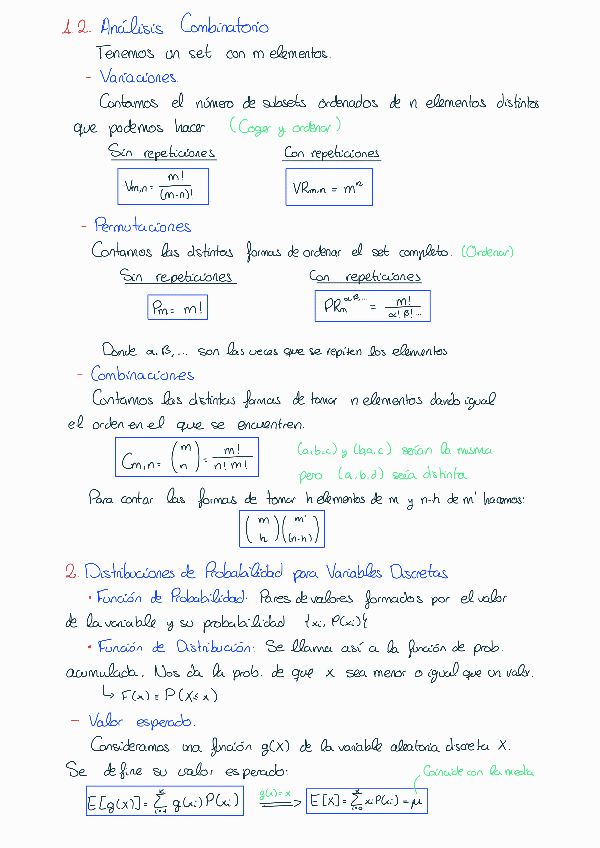 1.2. Análisis Combinatorio
Tenemos un set con m elementos.
- Variaciones.
Contamos el número de subsets ordenados de n elementos distintos
que podemos hacer. (Coger y ordenar)
Sin repeticiones Con repeticiones
Vm,n = m! / (m-n)! VRm,n = m^n
- Permutaciones
Contamos las distintas formas de ordenar el set completo. (Ordenar)
Sin repeticiones Con repeticiones
Pm = m! PRm^α,β,... = m! / α! β! ...
Donde α, β, ... son las veces que se repiten los elementos
- Combinaciones
Contamos las distintas formas de tomar n elementos dando igual
el orden en el que se encuentren.
Cm,n = (m n) = m! / n! m! (a,b,c) y (b,a,c) serían la misma
pero (a,b,d) sería distinta
Para contar las formas de tomar h elementos de m y n-h de m' hacemos:
(m h) (m' (n-h))
2. Distribuciones de Probabilidad para Variables Discretas
• Función de Probabilidad: Pares de valores formados por el valor
de la variable y su probabilidad {xi, P(xi)}
• Función de Distribución: Se llama así a la función de prob.
acumulada. Nos da la prob. de que x sea menor o igual que un valor.
↳ F(x) = P(X≤x)
- Valor esperado.
Consideramos una función g(X) de la variable aleatoria discreta X.
Se define su valor esperado: Coincide con la media
E[g(X)] = Σ g(xi) P(xi) g(x)=x E[X] = Σ xi P(xi) = μ